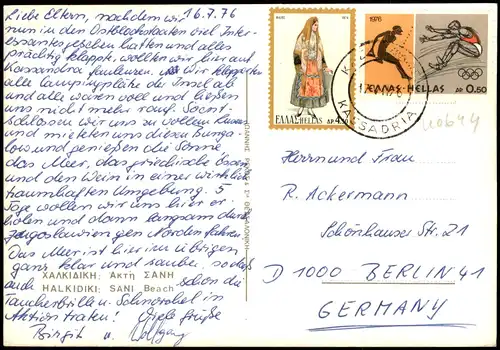 16.7.76
Liebe Eltern, nachdem wir
nun in den Ostblockstaaten viel Inter-
essantes gesehen hatten und alles
prächtig klappte, wollten wir hier auf
Kassandra faulenzen. Wir klapperten
alle Campingplätze der Insel ab
und alle waren voll und ließen
uns nicht mehr rauf. Sonst
schlossen wir uns zu vollem Luxus
und mieteten uns diesen Bunga-
low und genießen die Sonne
das Meer, das griechische Essen
und den Wein in einer wirklich
traumhaften Umgebung. 5
Tage wollen wir uns hier er-
holen und dann langsam durch
Jugoslawien gen Norden fahren.
Das Meer ist hier im übrigen
ganz klar und sauber, so daß
ΧΑΛΚΙΔΙΚΗ: Ακτή ΣΑΝΗ
auch schon die
HALKIDIKI: SANI Beach
Taucherbrillen u. Schnorchel in
Aktion traten! Viele Grüße
Birgit u. Wolfgang
ΘΕΣΣΑΛΟΝΙΚΗ
1974
ΕΛΛΑΣ HELLAS ΔΡ
1976
ΕΛΛΑΣ-HELLAS ΔΡ 0.60
KASSADRIA
40644
Herrn und Frau
R. Ackermann
Schönhauser Str. 21
D 1000 BERLIN 41
GERMANY